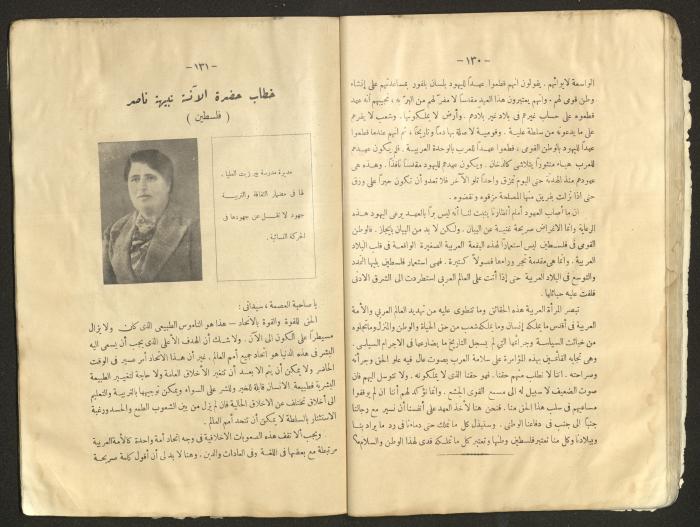 — ١٣٠ —
الواسعة لايوائهم . يقولون انهم قطعوا عهداً لليهود بلسان بلفور بمساعدتهم على إنشاء
وطن قومى لهم . وانهم يعتبرون هذا العهد مقدساً لا مفر لهم من البر به ، نجيبهم أنه عهد
قطعوه على حساب غيرهم فى بلاد غير بلادهم . وأرض لا يملكونها . وشعب لا يقرهم
على ما يدعونه من سلطة عليه . وقومية لا صلة بها دماً وتاريخاً ، ثم انهم عندما قطعوا
عهداً لليهود بالوطن القومى ، قطعوا عهداً للعرب بالوحدة العربية . فلم يكون عهدهم
للعرب هباء منثوراً يتلاشى كالدخان . ويكون عهدهم لليهود مقدساً نافذاً . وهذه هى
عهودهم منذ الهدنة حتى اليوم تمزق واحداً تلو الآخر فلا تعدو أن تكون حبراً على ورق
حتى اذا نزلت بفريق منها المصلحة مزقوه ونقضوه .
ان ما أصاب العهود أمام أنظارنا يثبت لنا أنه ليس براً بالعهد يرمى اليهود هذه
الرعاية وانما الاغراض صريحة غنية عن البيان . ولكن لا بد من البيان بإيجاز . فالوطن
القومى فى فلسطين ليس استعماراً لهذه البقعة العربية الصغيرة الواقعة فى قلب البلاد
العربية . وانما هى مقدمة تجر وراءها فصولاً كثيرة . فهى استعمار فلسطين يليها التمدد
والتوسع فى البلاد العربية حتى إذا أتت على العالم العربى استطردت الى الشرق الادنى
فلفت عليه حبائلها .
تبصر المرأة العربية هذه الحقائق وما تنطوى عليه من تهديد العالم العربى والأمة
العربية فى أقدس ما يملكه إنسان وما يملكه شعب من حق الحياة والوطن والمنزل وما تحلوه
من خبائث السياسة وجرائمها التى لم يسجل التاريخ ما يضارعها فى الاجرام السياسى .
وهى تجابه القائمين بهذه المؤامرة على سلامة العرب بصوت عال فيه علو الحق وجرأته
وصراحته . اننا لا نطلب منهم حقنا . فهو حقنا الذى لا يملكونه . ولا نتوسل اليهم فان
صوت الضعيف لا سبيل له الى مسمع القوى الجشع . وانما نؤكد لهم أننا ان لم يوقفوا
مساعيهم فى سلب هذا الحق منا . فنحن هنا لأخذ العهد على أنفسنا أن نسير مع رجالنا
جنباً الى جنب فى دفاعنا الوطنى . وسنبذل كل ما نملك حتى دماءنا فى رد ما يراد بنا
وببلادنا وكل منا تعتبر فلسطين وطنها وتعتبر كل ما تملكه فدى لهذا الوطن والسلام
— ١٣١ —
خطاب حضرة الآنسة نبيهة ناصر
( فلسطين )
مديرة مدرسة بيرزيت العليا .
لها فى مضمار الثقافة والتربيــة
جهود لا تقــل عن جهودها فى
الحركة النسائية .
يا صاحبة العصمة ، سيداتى :
الحق للقوة والقوة بالاتحاد — هذا هو الناموس الطبيعى الذى كان ولا يزال
مسيطراً على الكون الى الآن . ولا شــك أن الهدف الأعلى الذى يجب أن يسعى اليه
البشر فى هذه الدنيا هو اتحاد جميع أمم العالم . غير أن هــذا الاتحاد أمر عسير فى الوقت
الحاضر ولا يمكن أن يتم الا بعــد أن تتغير الأخلاق العامة ولا حاجة لتغيــير الطبيعة
البشرية فطبيعة الانسان قابلة للخير وللشر على السواء ويمكن توجيهها بالتربيــة والتعليم
الى أخلاق تختلف عن الاخلاق الحالية فان لم يزل من بين الشعوب الطمع والحســد ورغبة
الاستئثار بالسلطة لا يمكن أن تتحد أمم العالم .
ويجب ألا تقف هذه الصعوبات الاخلاقية فى وجه اتحاد أمة واحدة كالأمة العربية
مرتبطة مع بعضها فى اللغــة وفى العادات والدين . وهنا لا بد لى أن أقول كلمة صريحــة